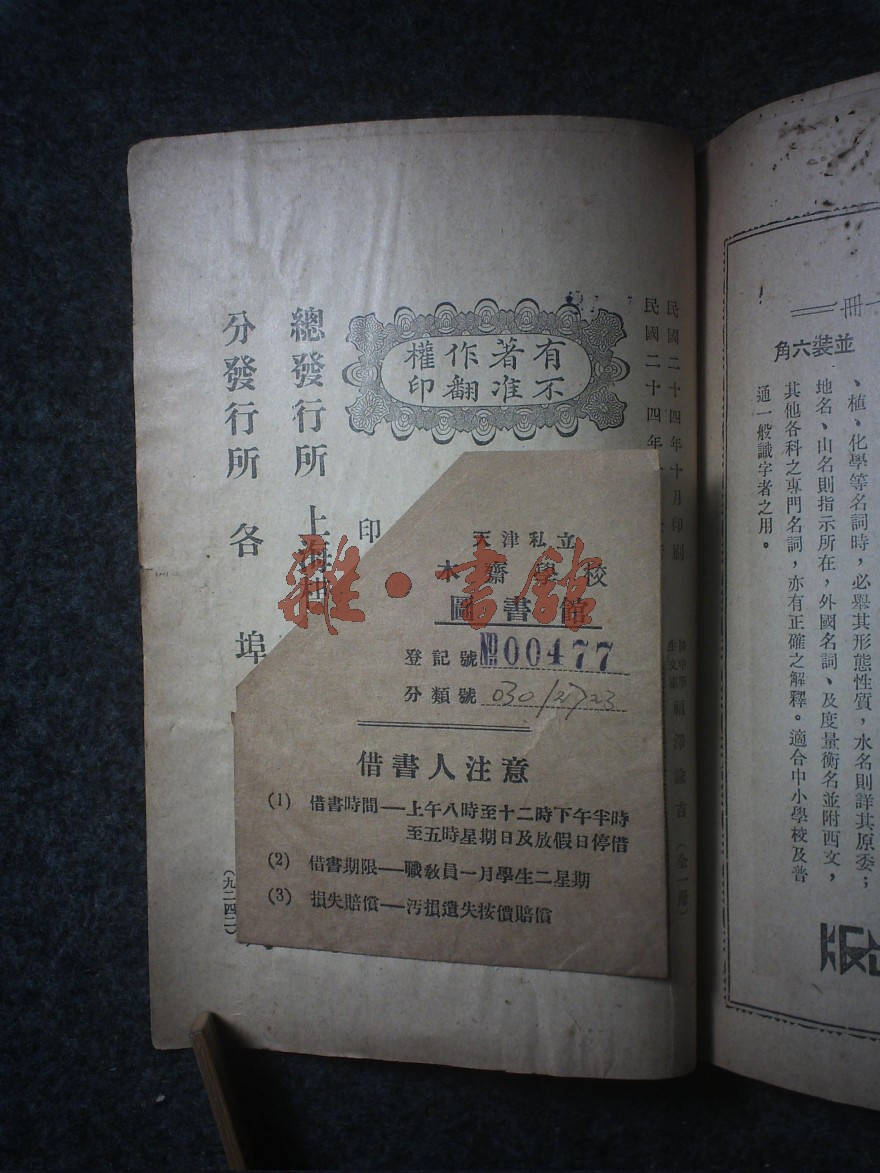 民國二十四年十月印刷
民國二十四年
顧澤詒吉（全一冊）
有著作權
不准翻印
印
總發行所 上海
分發行所 各 埠
（九二四二）
天津私立
木齋學校
圖書館
登記號 №00477
分類號 030/
借書人注意
(1) 借書時間—上午八時至十二時下午半時
至五時星期日及放假日停借
(2) 借書期限—職敎員一月學生二星期
(3) 損失賠償—汚損遺失按價賠償
雜·書館
一冊
並裝六角
、植、化學等名詞時，必舉其形態性質，水名則詳其原委；
地名、山名則指示所在，外國名詞、及度量衡名並附西文，
其他各科之專門名詞，亦有正確之解釋。適合中小學校及普
通一般識字者之用。
版出